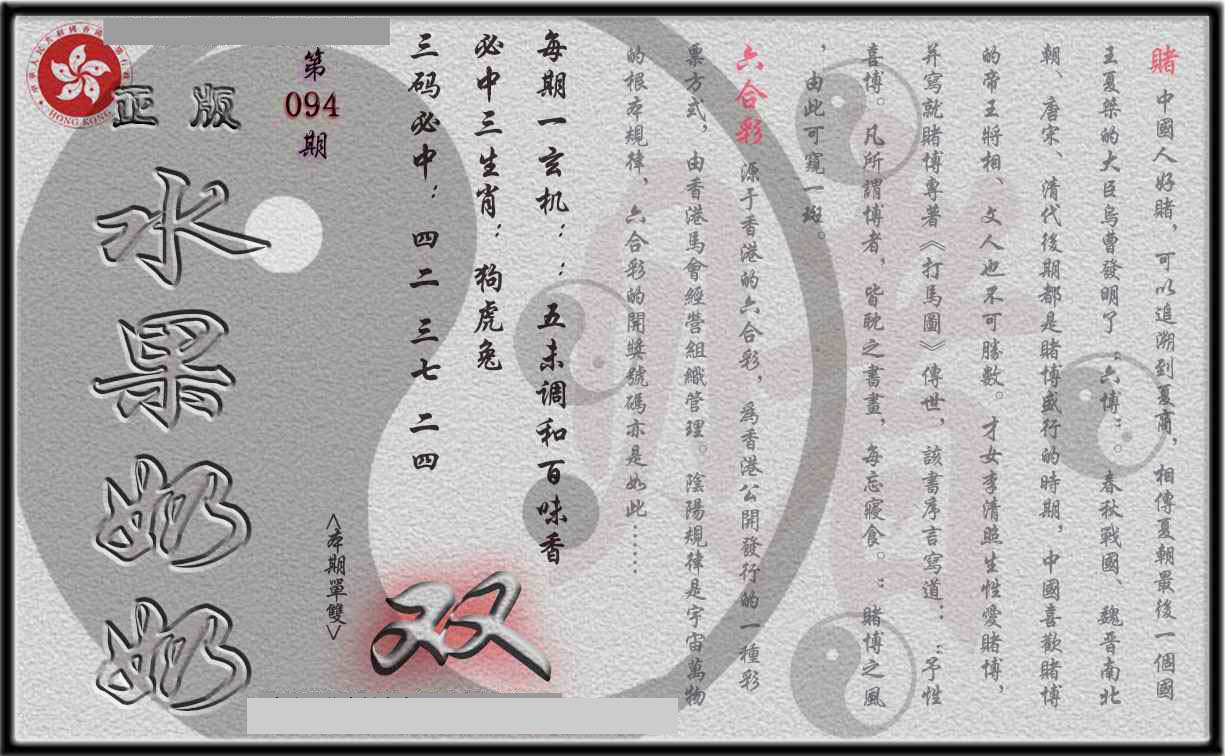 賭 中國人好賭，可以追溯到夏商，相傳夏朝最後一個國
王夏桀的大臣烏曹發明了“六博”。春秋戰國、魏晉南北
朝、唐宋、清代後期都是賭博盛行的時期，中國喜歡賭博
的帝王將相、文人也不可勝數。才女李清照生性愛賭博，
并寫就賭博專著《打馬圖》傳世，該書序言寫道：“予性
喜博。凡所謂博者，皆耽之書畫，每忘寢食。”賭博之風
，由此可窺一斑。
六合彩 源于香港的六合彩，為香港公開發行的一種彩
票方式，由香港馬會經營組織管理。陰陽規律是宇宙萬物
的根本規律、六合彩的開獎號碼亦是如此……
每期一玄机：：五未调和百味香
必中三生肖：狗虎兔
三码必中：四二 三七 二四
双
<本期單雙>
第
094
期
正版
水果奶奶
HONG KONG